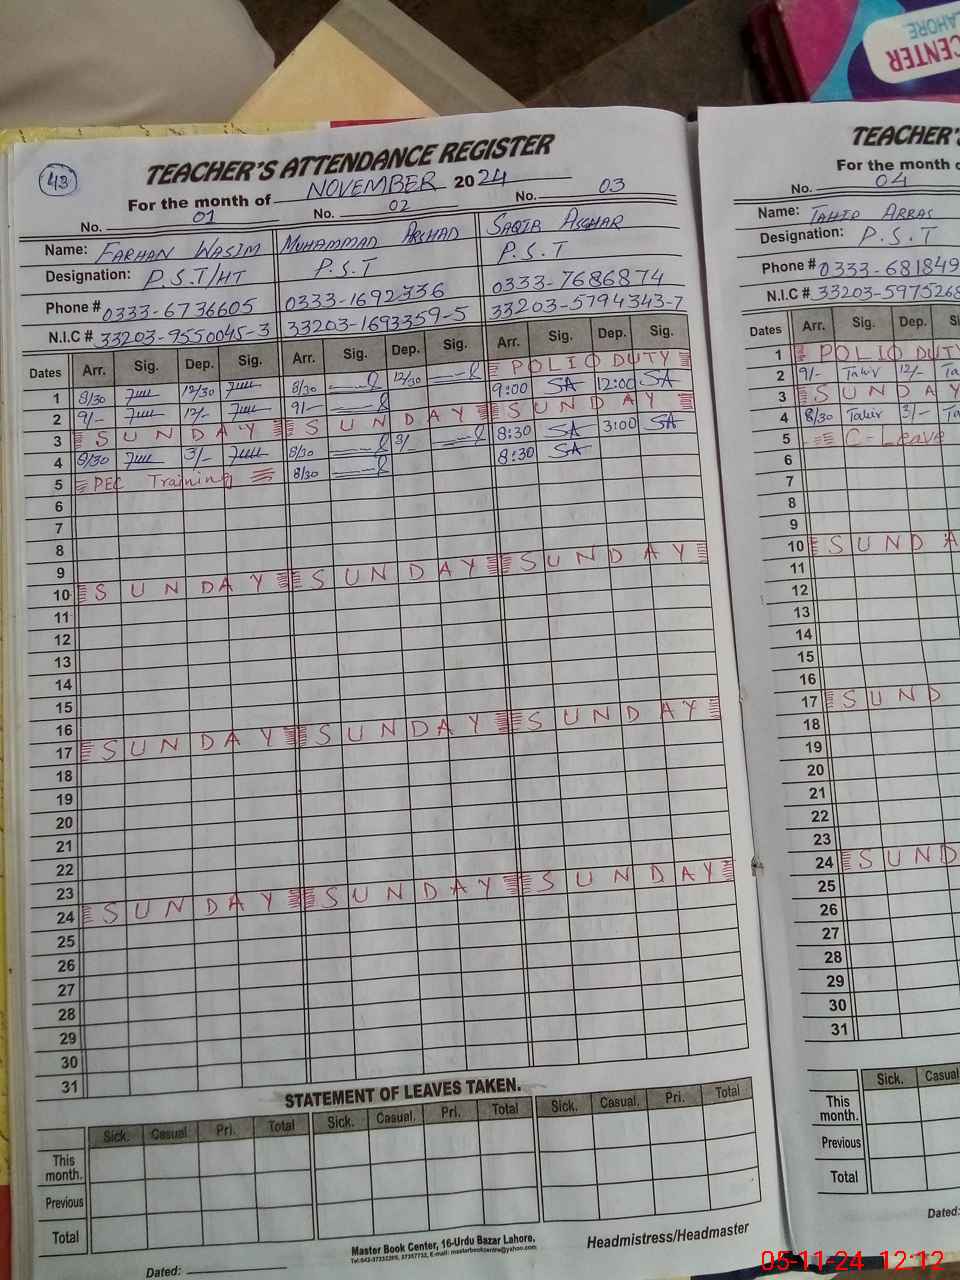 CENTER
LAHORE
43
TEACHER'S ATTENDANCE REGISTER
For the month of NOVEMBER 2024
No. 01 No. 02 No. 03
Name: FARHAN WASIM MUHAMMAD ARSHAD SAQIB ASGHAR
Designation: P.S.T/HT P.S.T P.S.T
Phone # 0333-6736605 0333-1692336 0333-7686874
N.I.C # 33203-9550045-3 33203-1693359-5 33203-5794343-7
Dates Arr. Sig. Dep. Sig. Arr. Sig. Dep. Sig. Arr. Sig. Dep. Sig.
1 8/30 12/30 8/30 12/30 POLIO DUTY
2 9/- 12/- 9/- 9:00 SA 12:00 SA
3 SUNDAY SUNDAY SUNDAY
4 8/30 3/- 8/30 3/- 8:30 SA 3:00 SA
5 PEC Training 8/30 8:30 SA
6
7
8
9
10 SUNDAY SUNDAY SUNDAY
11
12
13
14
15
16
17 SUNDAY SUNDAY SUNDAY
18
19
20
21
22
23
24 SUNDAY SUNDAY SUNDAY
25
26
27
28
29
30
31
STATEMENT OF LEAVES TAKEN.
Sick. Casual Pri. Total Sick. Casual. Pri. Total Sick. Casual. Pri. Total
This month.
Previous
Total
Master Book Center, 16-Urdu Bazar Lahore,
Headmistress/Headmaster
Dated:
TEACHER'S
For the month o
No. 04
Name: TAHIR ABBAS
Designation: P.S.T
Phone # 0333-681849
N.I.C # 33203-5975268
Dates Arr. Sig. Dep. Si
1 POLIO DUTY
2 9/- Tahir 12/- Ta
3 SUNDAY
4 8/30 Tahir 3/- Ta
5 C-Leave
6
7
8
9
10 SUNDA
11
12
13
14
15
16
17 SUND
18
19
20
21
22
23
24 SUND
25
26
27
28
29
30
31
Sick. Casual
This month.
Previous
Total
Dated:
05-11-24 12:12